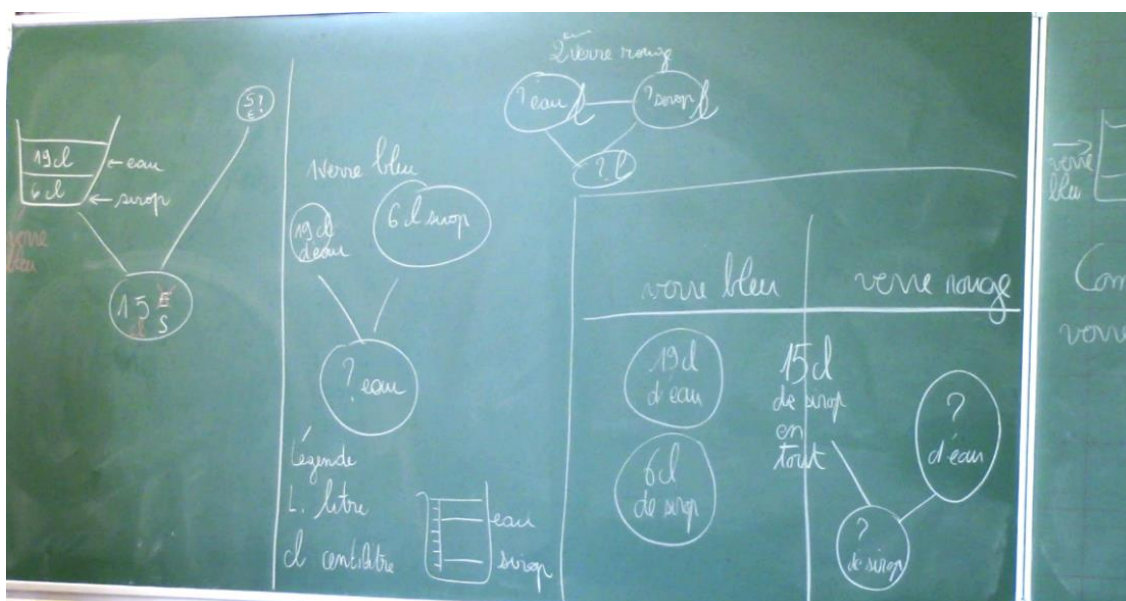 5?
E
19cl
eau
6cl
sirop
verre
bleu
15 E
cl S
1verre bleu
19cl
d'eau
6cl sirop
? eau
Légende
L. litre
cl centilitre
eau
sirop
2 verre rouge
? eau l
? sirop l
? l
verre bleu
verre rouge
19cl
d'eau
6cl
de sirop
15cl
de sirop
en
tout
?
d'eau
?
de sirop
verre
bleu
Com
verre